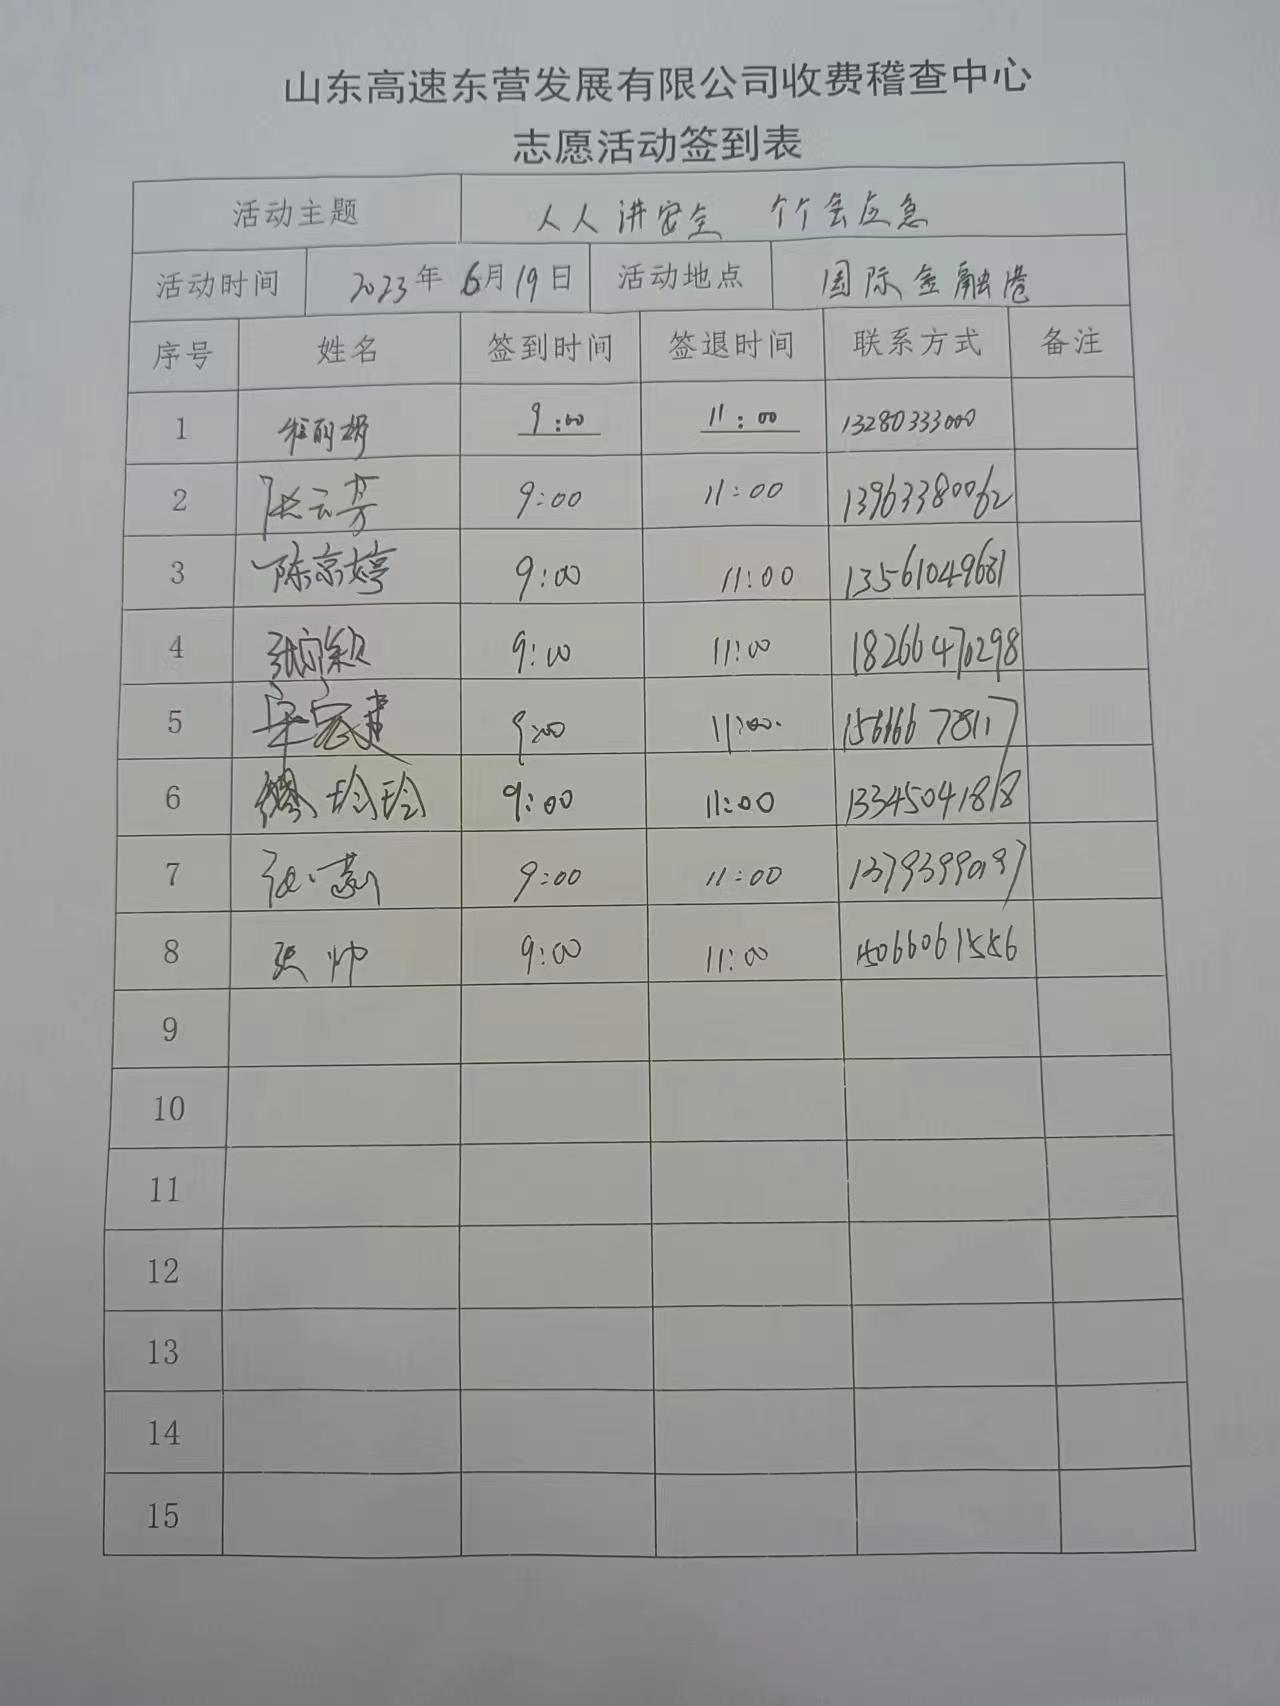 山东高速东营发展有限公司收费稽查中心
志愿活动签到表
活动主题 人人讲安全 个个会应急
活动时间 2023年 6月19日 活动地点 国际金融港
序号 姓名 签到时间 签退时间 联系方式 备注
1 9:00 11:00 13280333000
2 张云芳 9:00 11:00 13963380062
3 陈京婷 9:00 11:00 13561049681
4 9:00 11:00 18266470298
5 9:00 11:00 15666678117
6 缪玲玲 9:00 11:00 13345041818
7 张慧 9:00 11:00 13793990197
8 张帅 9:00 11:00 15066061556
9
10
11
12
13
14
15